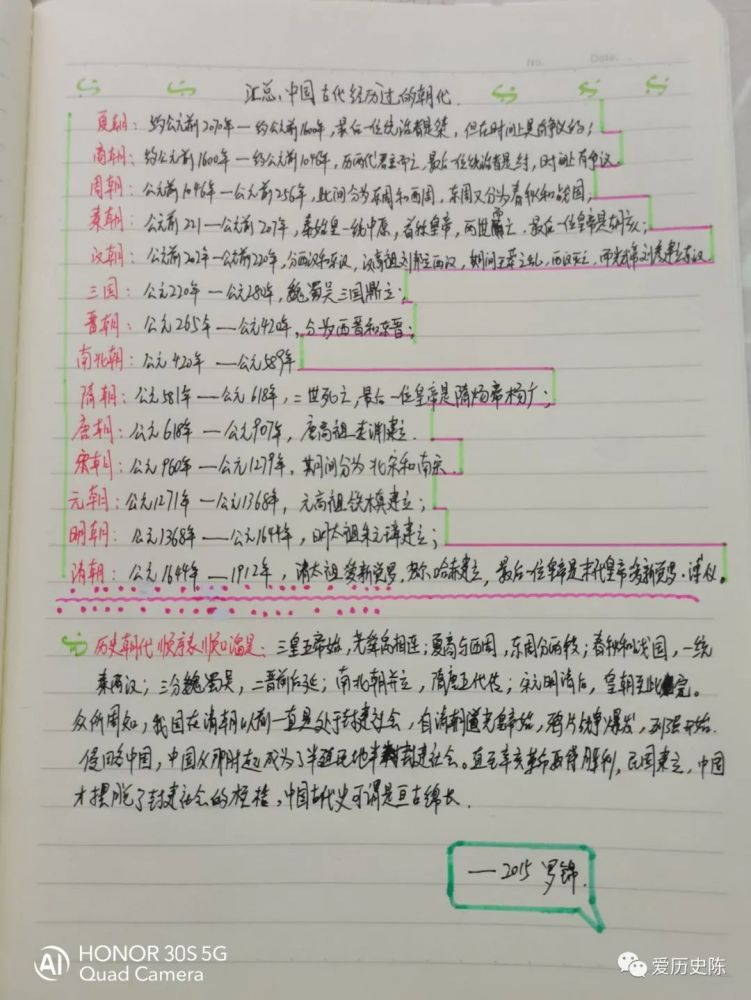 No.
Date.
汇总:中国古代经历过的朝代.
夏朝:约公元前2070年—约公元前1600年,最后一位统治者是桀,但在时间上是有争议的;
商朝:约公元前1600年—约公元前1046年,历两代君主而亡,最后一位统治者是纣,时间上有争议。
周朝:公元前1046年—公元前256年,此间分为东周和西周,东周又分为春秋和战国;
秦朝:公元前221—公元前207年,秦始皇一统中原,首称皇帝,两世而亡.最后一位皇帝是胡亥;
汉朝:公元前202年—公元前220年,分西汉和东汉,汉高祖刘邦立西汉,期间王莽之乱,西汉灭亡,而光武帝刘秀建立东汉
三国:公元220年—公元280年,魏蜀吴三国鼎立;
晋朝:公元265年—公元420年,分为西晋和东晋;
南北朝:公元420年—公元589年
隋朝:公元581年—公元618年,二世死亡,最后一位皇帝是隋炀帝杨广;
唐朝:公元618年—公元907年,唐高祖李渊建立.
宋朝:公元960年—公元1279年,其间分为北宋和南宋.
元朝:公元1271年—公元1368年,元高祖铁木真建立;
明朝:公元1368年—公元1644年,明太祖朱元璋建立;
清朝:公元1644年—1912年,清太祖爱新觉罗,努尔哈赤建立,最后一位皇帝是末代皇帝爱新觉罗·溥仪。
历史朝代顺序表顺口溜是:三皇五帝始,尧舜禹相连;夏商与西周,东周分两段;春秋和战国,一统
秦两汉;三分魏蜀吴,二晋前后延;南北朝并立,隋唐五代传;宋元明清后,皇朝至此完。
众所周知,我国在清朝以前一直是处于封建社会,自清朝道光皇帝始,鸦片战争爆发,列强开始.
侵略中国,中国从那时起成为了半殖民地半封建社会。直至辛亥革命取得胜利,民国建立,中国
才摆脱了封建社会的桎梏,中国古代史可谓是亘古绵长.
—2015 罗锦.
AI HONOR 30S 5G
Quad Camera
爱历史陈